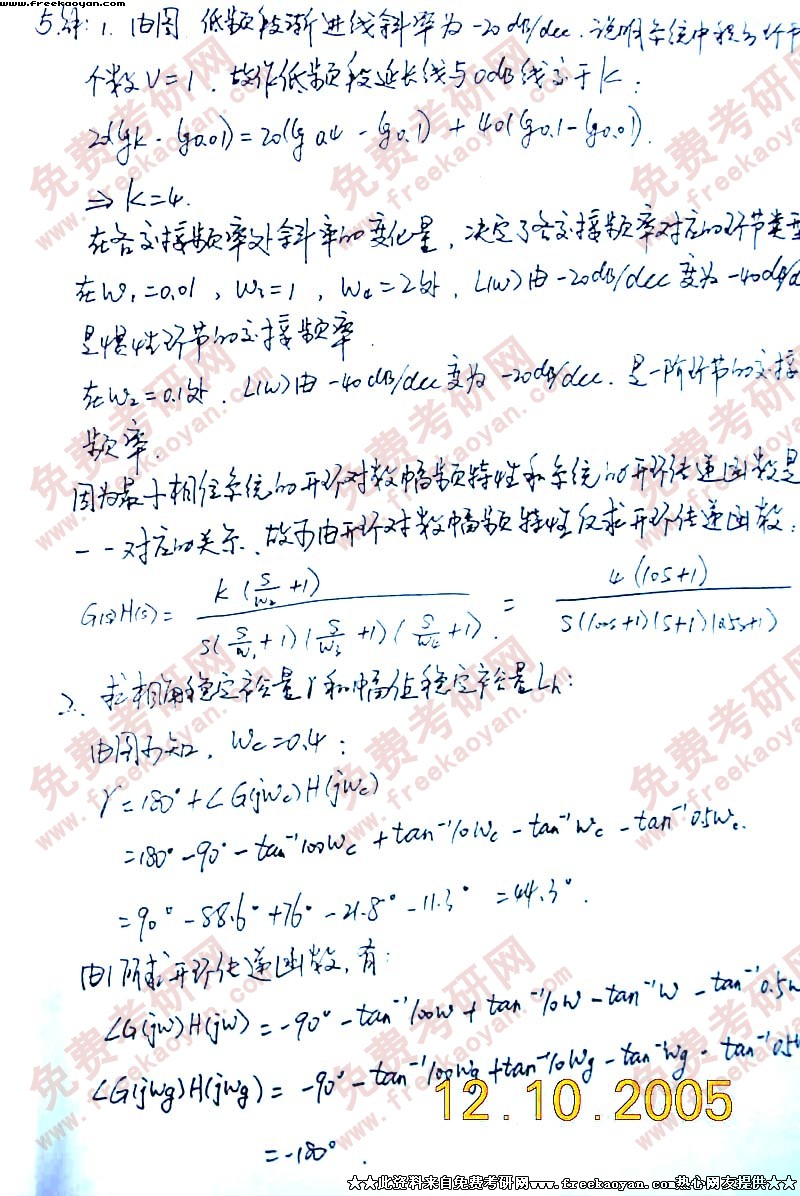 www.freekaoyan.com
5.解: 1. 由图 低频段渐进线斜率为 -20dB/dec. 说明系统中积分环节
个数V=1. 故作低频段延长线与0dB线交于K:
20(lgk - lg0.01) = 20(lg0.4 - lg0.1) + 40(lg0.1 - lg0.01).
⇒ K=4.
在各交接频率处斜率的变化量, 决定了各交接频率对应的环节类型
在W₁=0.01, W₃=1, W₄=2处, L(w)由-20dB/dec变为-40dB/d
是惯性环节的交接频率.
在W₂=0.1处. L(w)由-40dB/dec变为-20dB/dec. 是一阶环节的交接
频率.
因为最小相位系统的开环对数幅频特性和系统的开环传递函数是
一一对应的关系、故可由开环对数幅频特性反求开环传递函数:
G(s)H(s) = K(S/W₂+1) / S(S/W₁+1)(S/W₃+1)(S/W₄+1) = 4(10S+1) / S(100S+1)(S+1)(0.5S+1)
2. 求相角稳定裕量γ和幅值稳定裕量Lh:
由图可知, Wc=0.4:
γ=180°+∠G(jWc)H(jWc)
=180°-90°-tan⁻¹100Wc+tan⁻¹10Wc-tan⁻¹Wc-tan⁻¹0.5Wc.
=90°-88.6°+76°-21.8°-11.3°=44.3°.
由1所求开环传递函数, 有:
∠G(jw)H(jw)=-90°-tan⁻¹100w+tan⁻¹10w-tan⁻¹w-tan⁻¹0.5w
∠G(jWg)H(jWg)=-90°-tan⁻¹100Wg+tan⁻¹10Wg-tan⁻¹Wg-tan⁻¹0.5W
12.10.2005
=-180°.
★★此资料来自免费考研网www.freekaoyan.com热心网友提供★★